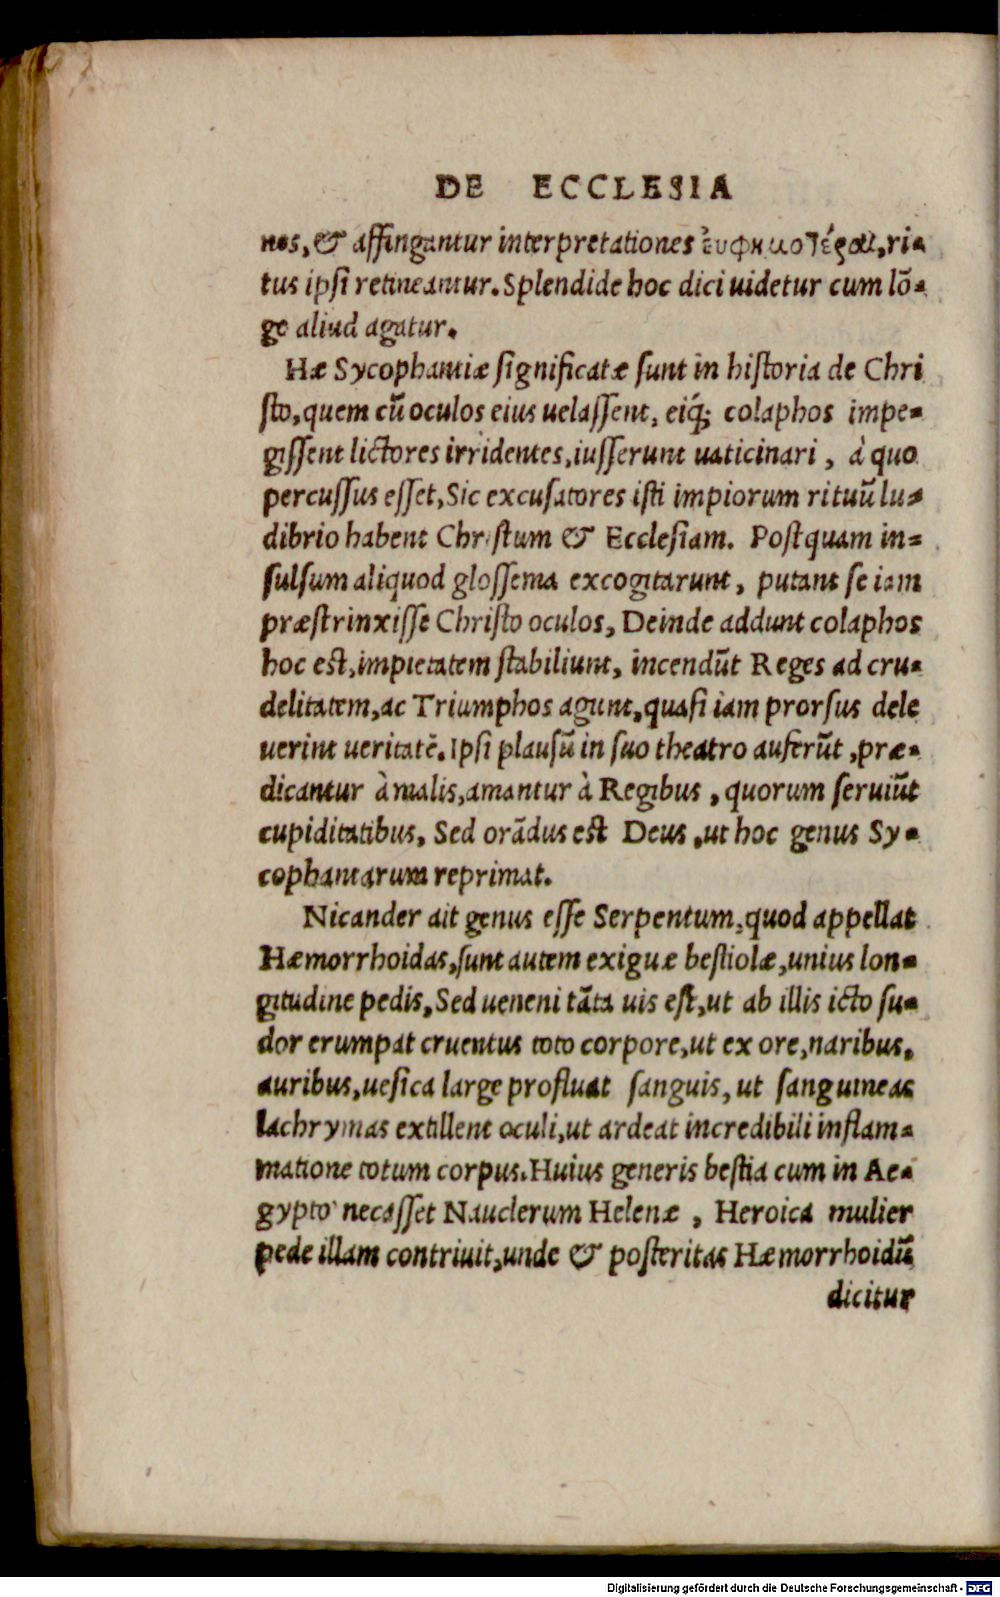 DE ECCLESIA
nes, & affingantur interpretationes ἐυφημοτέραι, ri-
tus ipsi retineantur. Splendide hoc dici uidetur cum lō-
ge aliud agatur.
Hæ Sycophantiæ significatæ sunt in historia de Chri
sto, quem cū oculos eius uelassent, eiq́; colaphos impe-
gissent lictores irridentes, iusserunt uaticinari, à quo
percussus esset, Sic excusatores isti impiorum rituū lu-
dibrio habent Christum & Ecclesiam. Postquam in-
sulsum aliquod glossema excogitarunt, putant se iam
præstrinxisse Christo oculos, Deinde addunt colaphos
hoc est, impietatem stabiliunt, incendūt Reges ad cru-
delitatem, ac Triumphos agunt, quasi iam prorsus dele
uerint ueritatē. Ipsi plausū in suo theatro auferūt, præ-
dicantur à malis, amantur à Regibus, quorum seruiūt
cupiditatibus, Sed orādus est Deus, ut hoc genus Sy-
cophantarum reprimat.
Nicander ait genus esse Serpentum, quod appellat
Hæmorrhoidas, sunt autem exiguæ bestiolæ, unius lon-
gitudine pedis, Sed ueneni tāta uis est, ut ab illis icto su-
dor erumpat cruentus toto corpore, ut ex ore, naribus,
auribus, uesica large profluat sanguis, ut sanguineas
lachrymas extillent oculi, ut ardeat incredibili inflam-
matione totum corpus. Huius generis bestia cum in Ae-
gypto necasset Nauclerum Helenæ, Heroica mulier
pede illam contriuit, unde & posteritas Hæmorrhoidū
dicitur
Digitalisierung gefördert durch die Deutsche Forschungsgemeinschaft - DFG